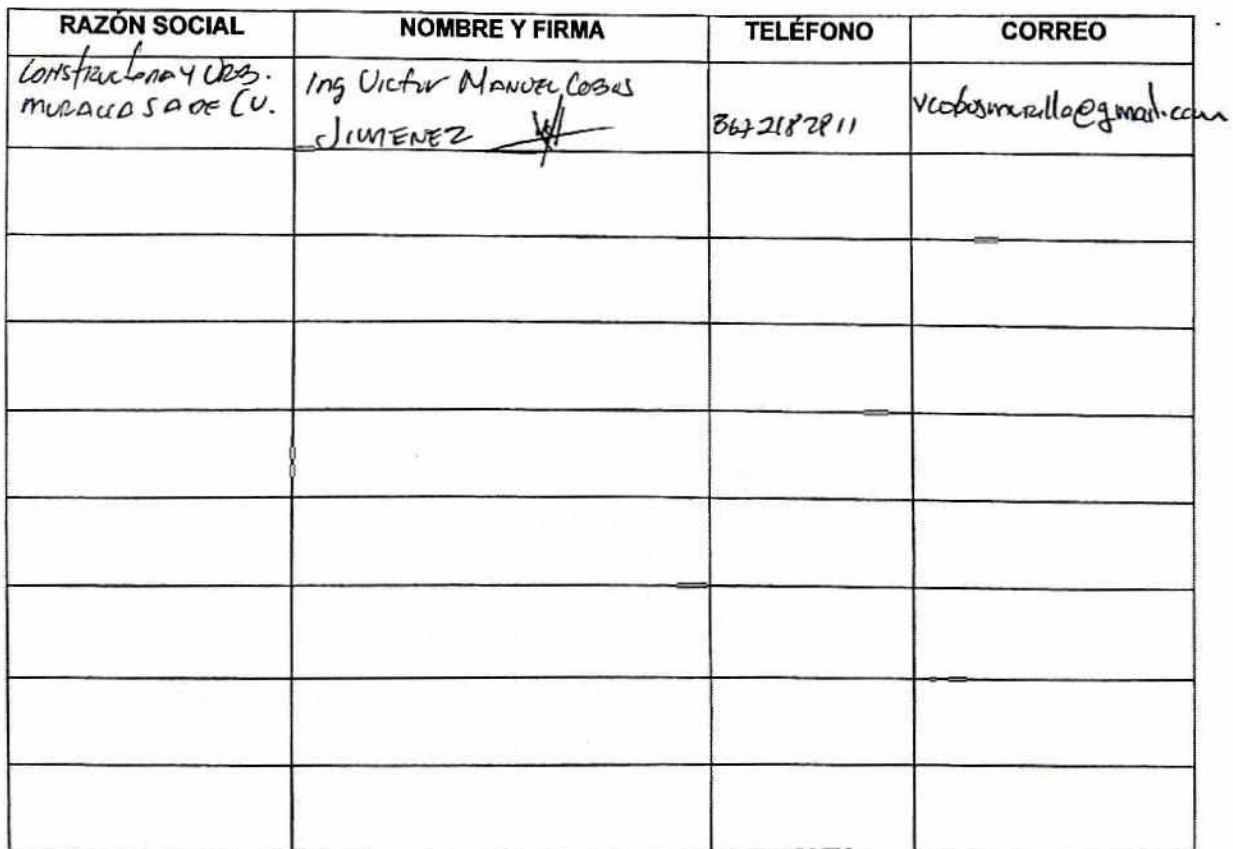 RAZÓN SOCIAL NOMBRE Y FIRMA TELÉFONO CORREO
Constructora y URB.
MURALLA SA DE CV.
Ing Victor MANUEL COBOS
JIMENEZ
867 218 2811
vcobosmuralla@gmail.com